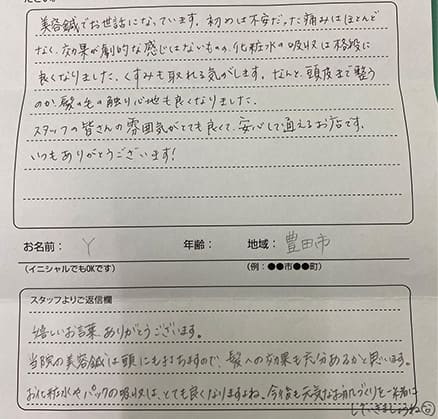 美容鍼でお世話になっています。初めは不安だった痛みはほとんど
なく、効果が劇的な感じはないものの、化粧水の吸収は格段に
良くなりました。くすみも取れる気がします。なんと、頭皮まで整う
のか髪の毛の触り心地も良くなりました。
スタッフの皆さんの雰囲気がとても良くて、安心して通えるお店です。
いつもありがとうございます!
お名前: Y 年齢: 地域: 豊田市
(イニシャルでもOKです) (例:●●市●●町)
スタッフよりご返信欄
嬉しいお言葉、ありがとうございます。
当院の美容鍼は頭にも打ちますので、髪への効果も充分あるかと思います。
お化粧水やパックの吸収は、とても良くなりますよね。今後も元気なお肌づくりを一緒に
していきましょうね